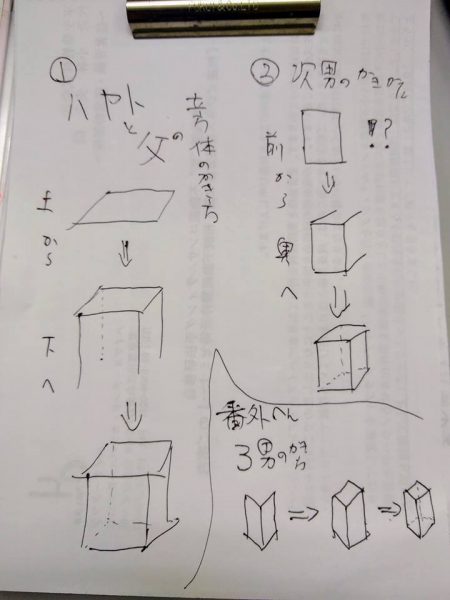 ①
ハヤトと父の
立方体のかき方
上から
下へ
② 次男のかきかた
!??
前から
奥へ
番外へん
3男のかき方